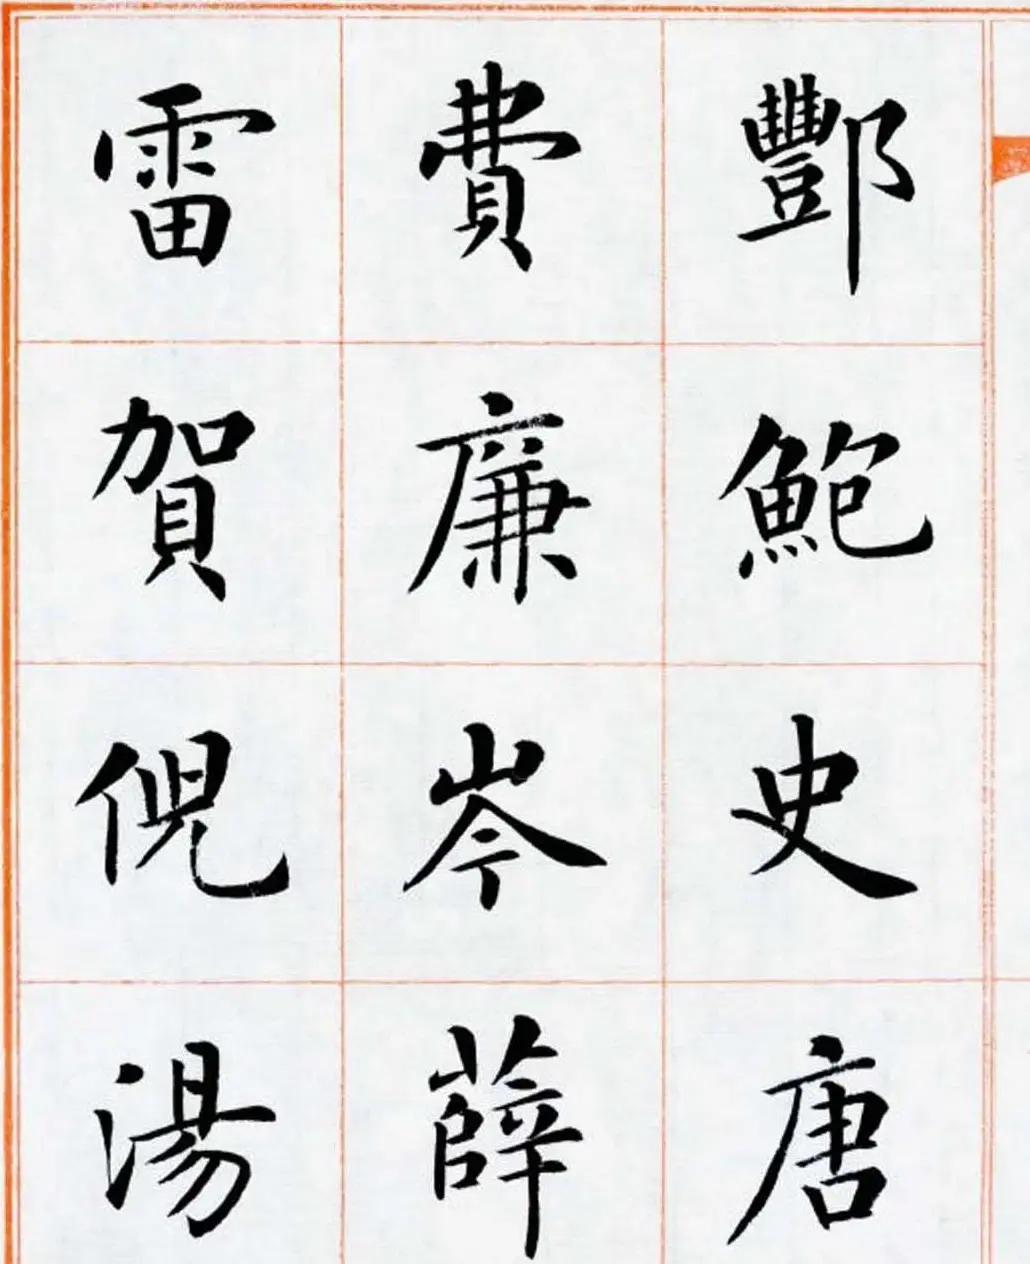 酆鮑史唐
費廉岑薛
雷賀倪湯